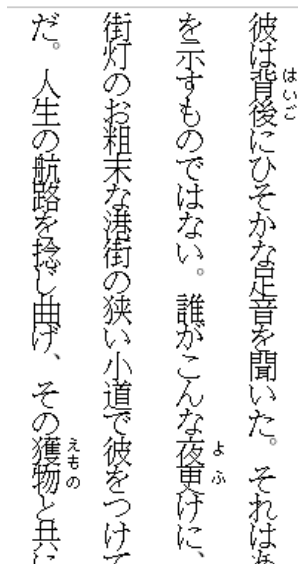 彼は背後にひそかな足音を聞いた。それは
を示すものではない。誰がこんな夜更けに、
街灯のお粗末な港街の狭い小道で彼をつけて
だ。人生の航路を捻じ曲げ、その獲物と共に
はいご
よふ
えもの